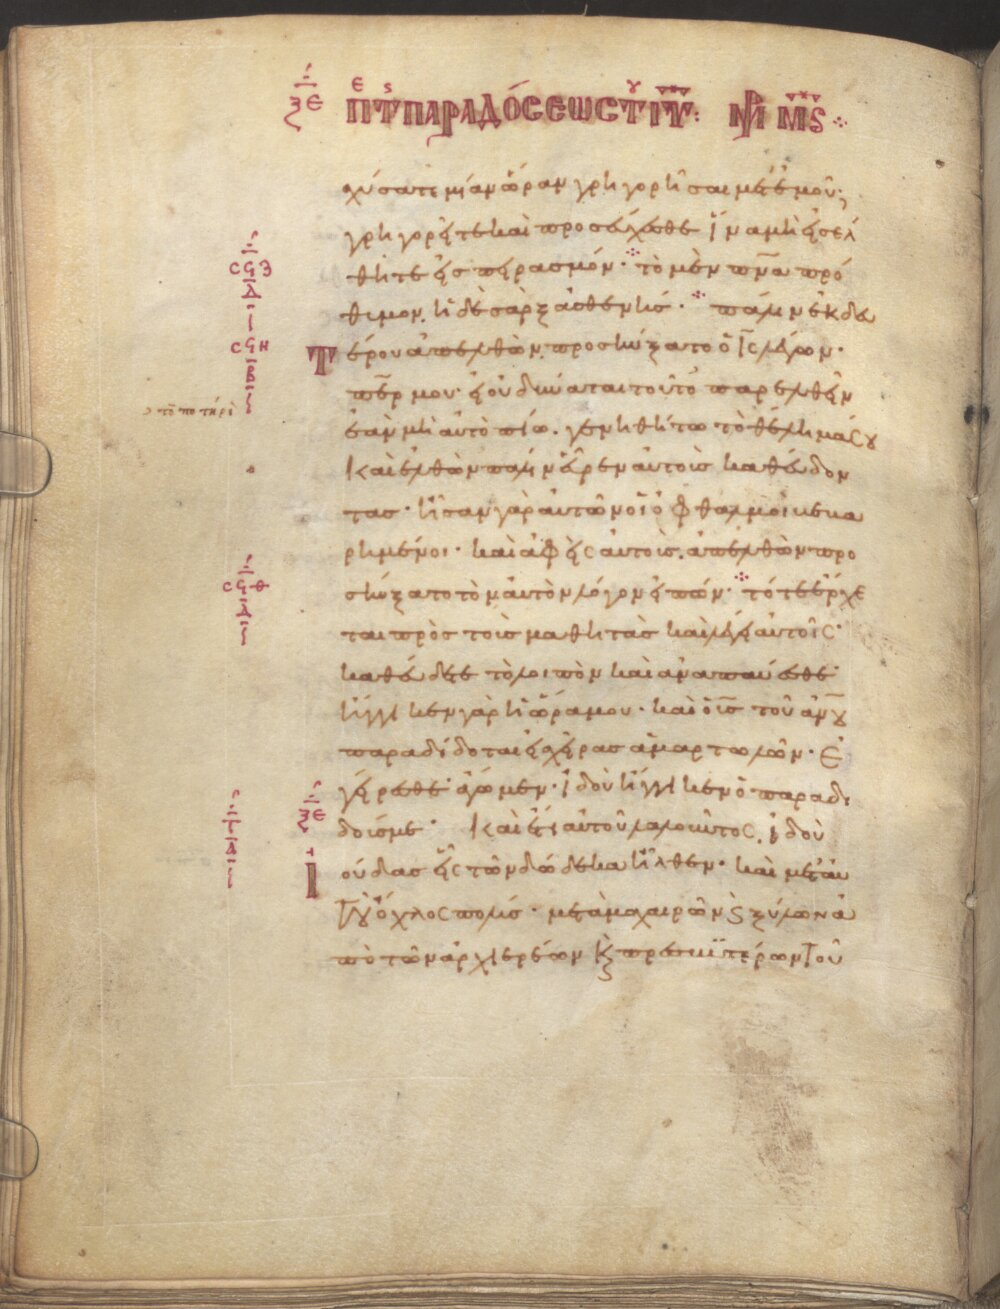 ξε
περὶ τῆς παραδόσεως τοῦ ἰυ:
χύσατε μίαν ὥραν γρηγορῆσαι μετ ἐμοῦ;
γρηγορέιτε καὶ προσέυχεσθε ἵνα μὴ ἐισέλ
θητε ἐις πειρασμόν· τὸ μὲν πνα πρό
θυμον. ἡ δὲ σὰρξ ἀσθενής· πάλιν ἐκ δευ
τέρου ἀπελθὼν, προσηύξατο ὁ ις λέγων·
περ μου· ἐι οὐ δύναται τοῦτο παρελθεῖν
τὸ ποτήρι
ἐὰν μὴ ἀυτὸ πίω. γενηθήτω τὸ θέλημά σου
καὶ ἐλθὼν πάλιν ἑυρεν ἀυτοὺς καθέυδον
τας· ἦσαν γὰρ ἀυτῶν οἱ ὀφθαλμοὶ βεβα
ρημένοι· καὶ ἀφεὶς ἀυτοὺς. ἀπελθὼν προ
σηύξατο τὸν ἀυτὸν λόγον ἐιπών· τότε ἔρχε
ται πρὸς τοὺς μαθητὰς καὶ λέγει ἀυτοῖς·
καθέυδετε τὸ λοιπὸν καὶ ἀναπαύεσθε·
ἤγγικεν γὰρ ἡ ὥρα μου· καὶ ὁ υις τοῦ ἀνου
παραδίδοται ἐις χεῖρας ἁμαρτωλῶν· ἐ
γείρεσθε· ἄγωμεν· ἰδοὺ ἤγγικεν ὁ παραδι
δούς με· Καὶ ἔτι ἀυτοῦ λαλοῦντος, ἰδοὺ
Ιούδας εἷς τῶν δώδεκα ἦλθεν· καὶ μετ ἀυ
τοῦ ὄχλος πολύς· μετὰ μαχαιρῶν ϗ ξύλων ἀ
πὸ τῶν ἀρχιερέων ϗ πρεσβυτέρων τοῦ